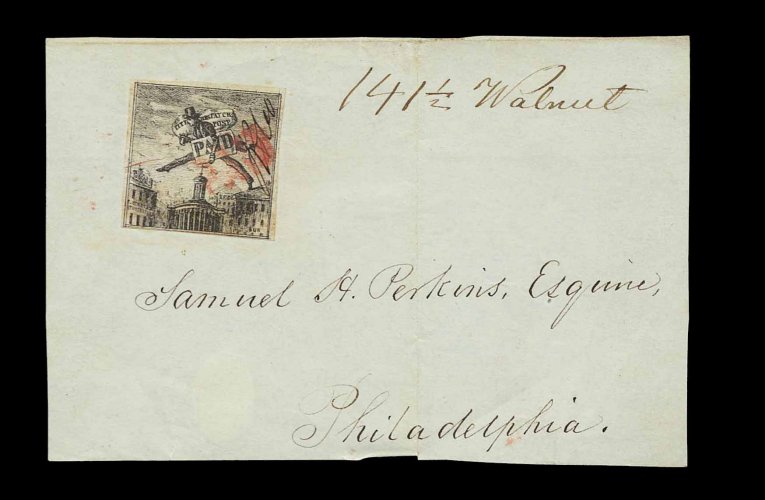 141½ Walnut
PAID
Samuel H. Perkins, Esquire,
Philadelphia.